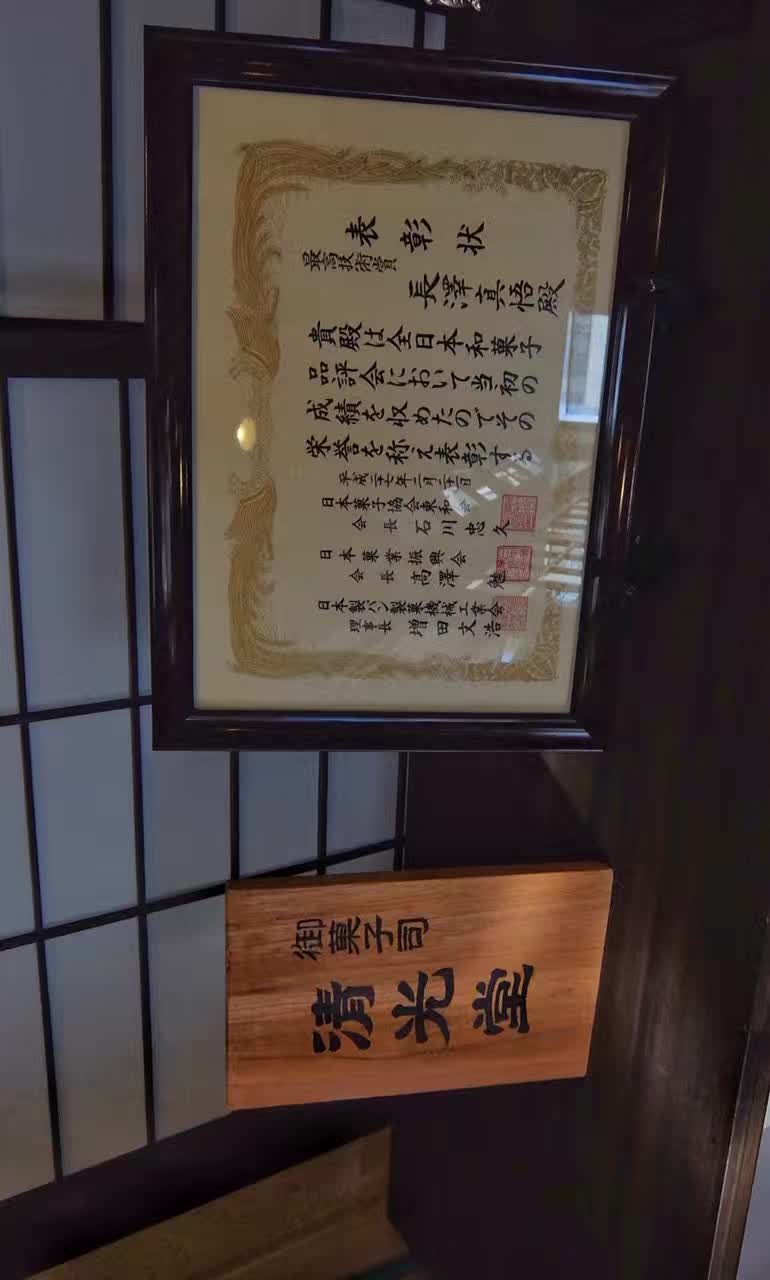 表彰状
最高技術賞
長澤真悟殿
貴殿は全日本和菓子
品評会において当初の
成績を収めたのでその
栄誉を称え表彰する
平成二十七年二月二十二日
日本菓子協会東和会
会長 石川忠久
日本菓業振興会
会長 高澤 勉
日本製パン製菓機械工業会
理事長 増田文浩
御菓子司
清光堂